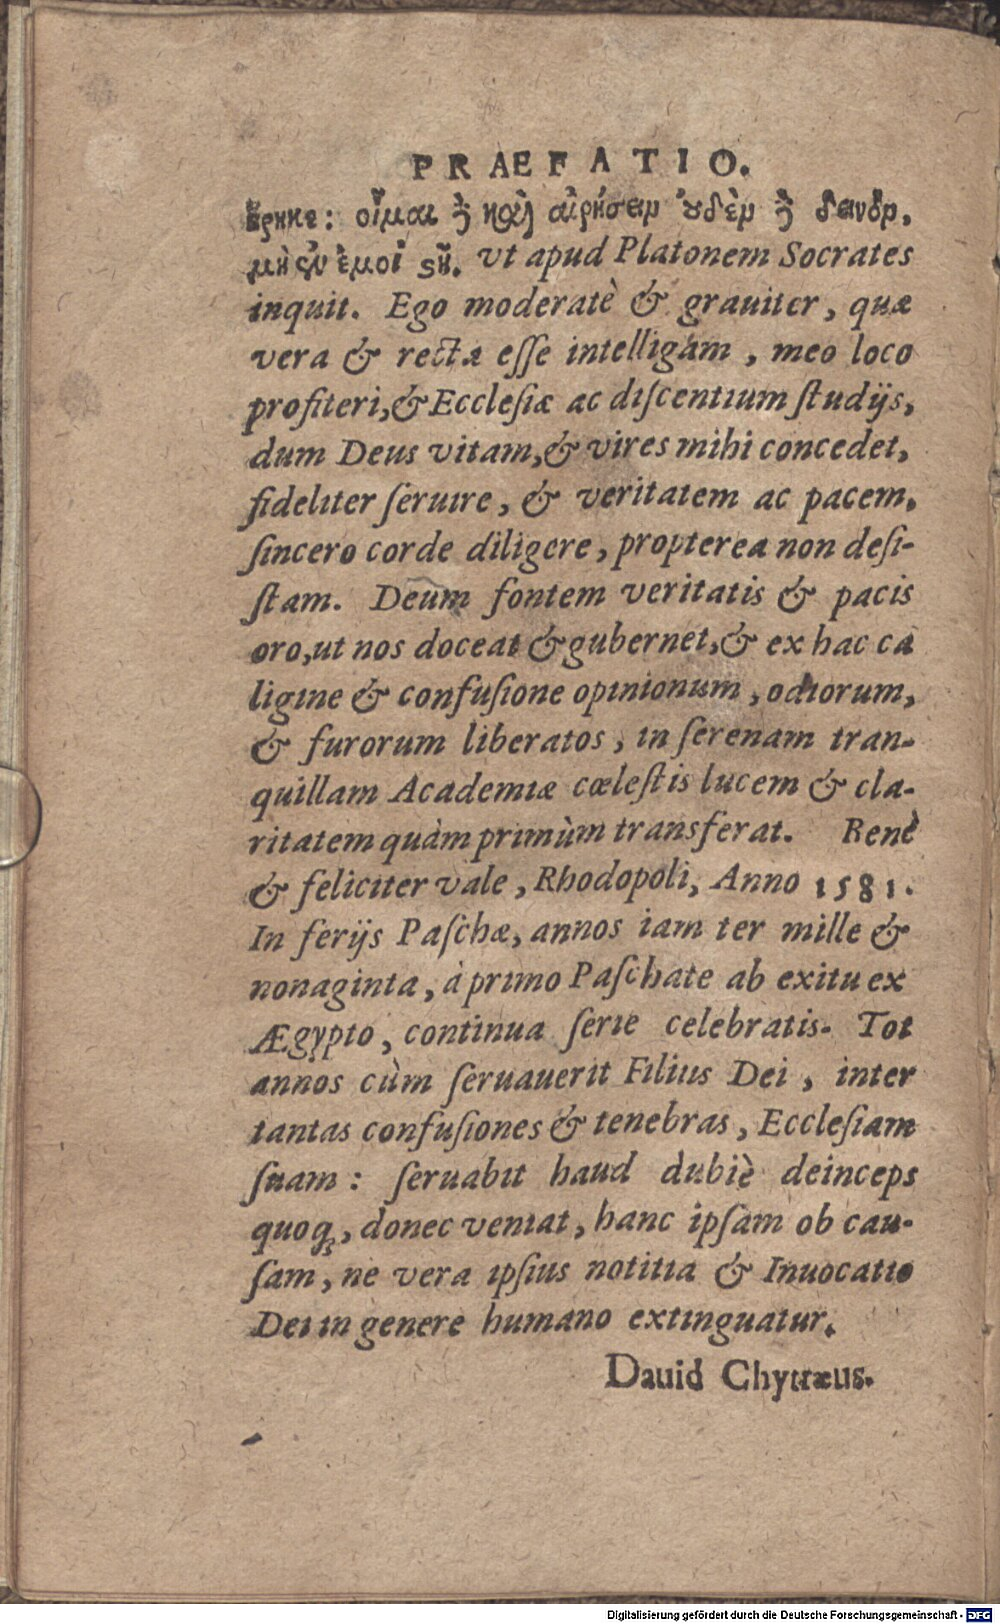 PRAEFATIO.
ᾕρηκε: οἶμαι ἢ καὶ αἱρήσειν οὐδὲν ἢ δεινὸν,
μὴ ἐν ἐμοὶ στῇ. vt apud Platonem Socrates
inquit. Ego moderatè & grauiter, quæ
vera & recta esse intelligam, meo loco
profiteri, & Ecclesiæ ac discentium studijs,
dum Deus vitam, & vires mihi concedet,
fideliter seruire, & veritatem ac pacem,
sincero corde diligere, propterea non desi-
stam. Deum fontem veritatis & pacis
oro, ut nos doceat & gubernet, & ex hac ca
ligine & confusione opinionum, odiorum,
& furorum liberatos, in serenam tran-
quillam Academiæ cœlestis lucem & cla-
ritatem quàm primùm transferat. Benè
& feliciter vale, Rhodopoli, Anno 1581.
In ferijs Paschæ, annos iam ter mille &
nonaginta, à primo Paschate ab exitu ex
Ægypto, continua serie celebratis. Tot
annos cùm seruauerit Filius Dei, inter
tantas confusiones & tenebras, Ecclesiam
suam: seruabit haud dubiè deinceps
quoq́ꝫ, donec veniat, hanc ipsam ob cau-
sam, ne vera ipsius notitia & Inuocatio
Dei in genere humano extinguatur.
Dauid Chytræus.
Digitalisierung gefördert durch die Deutsche Forschungsgemeinschaft - DFG